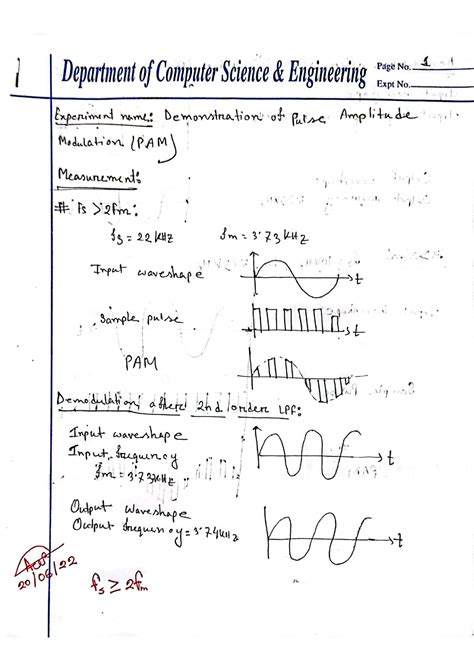 Department of Computer Science & Engineering
Page No. 1
Expt No.
Experiment name: Demonstration of Pulse Amplitude
Modulation (PAM)
Measurement:
# fs > 2fm:
fs = 22 KHZ fm = 3.73 KHZ
Input waveshape
t
Sample pulse
t
PAM
Demodulation after 2nd order LPF:
Input waveshape
Input frequency
fm = 3.73KHZ
t
Output waveshape
Output frequency = 3.74KHZ
t
20/06/22
fs ≥ 2fm